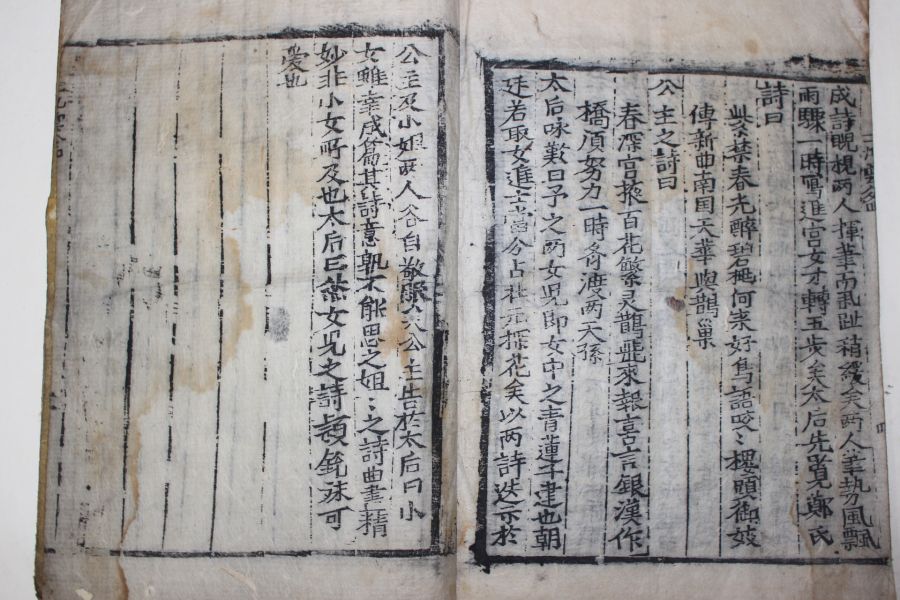 成詩睨視兩人揮筆而乱趾稍緩矣兩人筆勢風飄
雨驟一時寫進宮女才轉五步矣太后先覽鄭氏
詩曰
紫禁春光醉碧桃何来好鳥語咬〻樓頭御妓
傳新曲南国天華與鵲巢
公主之詩曰
春深宮掖百花繁灵鵲飛来報喜言銀漢作
橋須努力一時斉渡兩天孫
太后咏歎曰予之兩女児即女中之青蓮子建也朝
廷若取女進士當分占壮元探花矣以兩詩迭示於
公主及小姐兩人各自敬服公主告於太后曰小
女雖幸成篇其詩意孰不能思之姐〻之詩曲盡精
妙非小女所及也太后曰然女児之詩頴鋭殊可
愛也